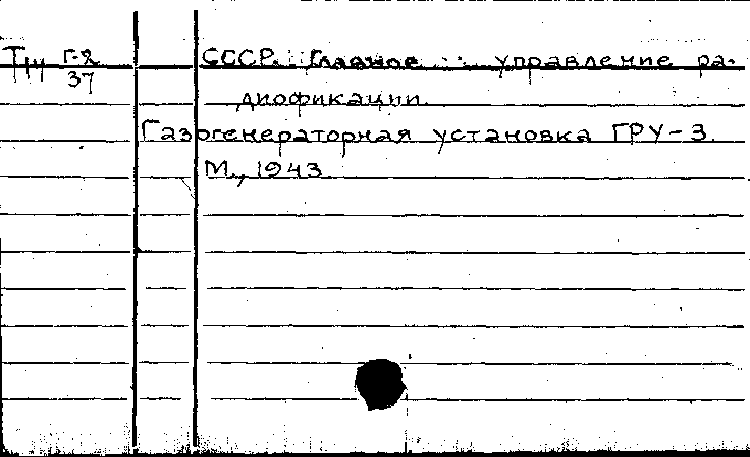 Г-2
37
СССР. Главное управление ра-
диофикации.
Газогенераторная установка ГРУ-3.
М., 1943.